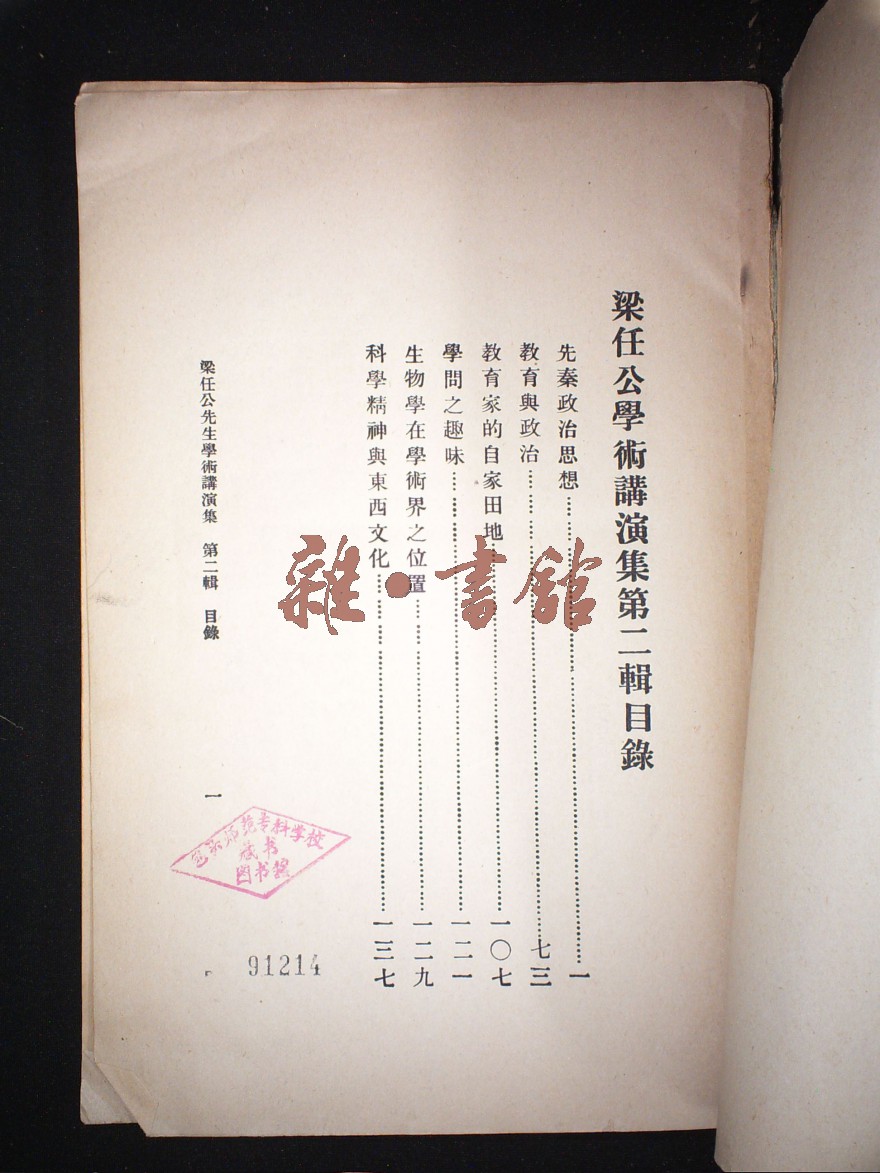 梁任公學術講演集第二輯目錄
先秦政治思想……一
教育與政治……七三
教育家的自家田地……一〇七
學問之趣味……一二一
生物學在學術界之位置……一二九
科學精神與東西文化……一三七
梁任公先生學術講演集 第二輯 目錄 一
雜•書館
师范专科学校
藏书
图书馆
91214